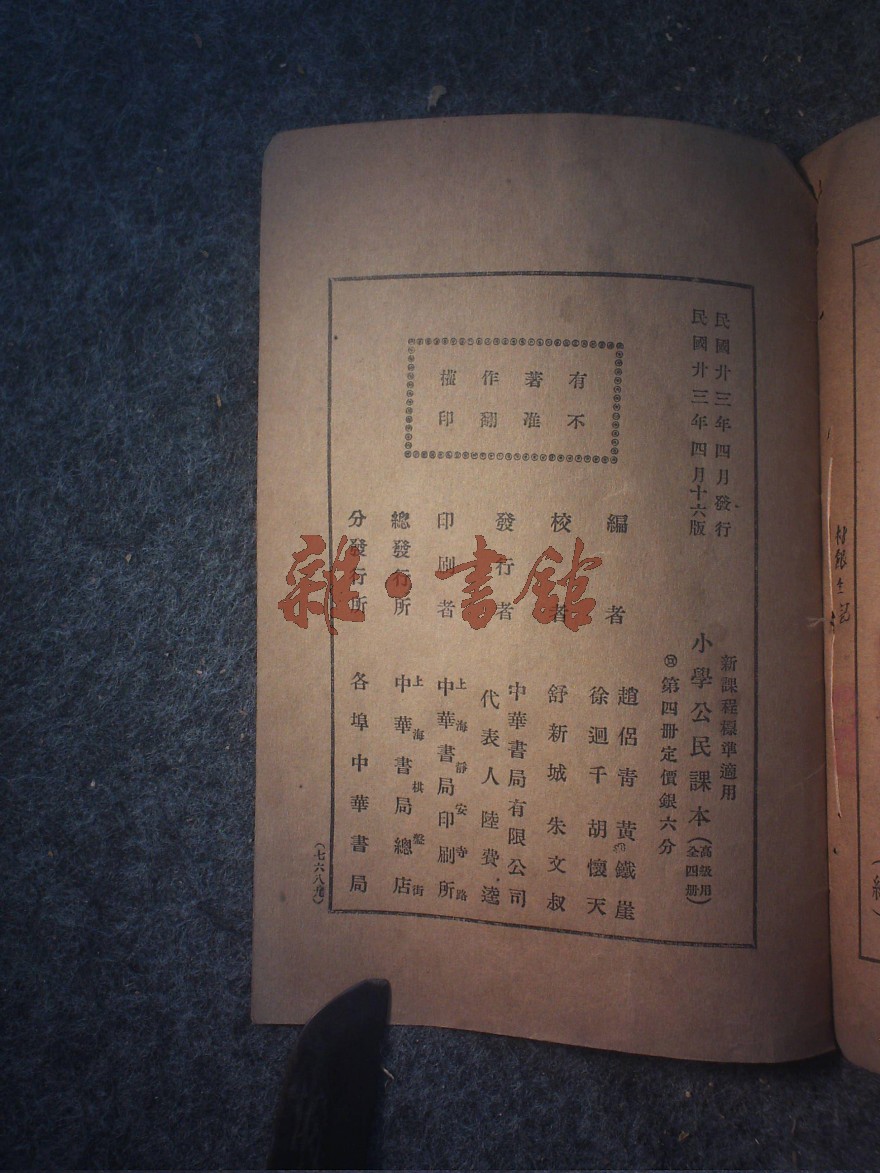 民國廿三年四月發行
民國廿三年四月十六版
新課程標準適用
小學公民課本（高級用全四冊）
第四冊定價銀六分
有著作權
不准翻印
編者
趙侶青 黃鐵崖
徐迴千 胡懷天
校者
舒新城 朱文叔
發行者
中華書局有限公司
代表人 陸費逵
印刷者
上海靜安寺路
中華書局印刷所
總發行所
上海棋盤街
中華書局總店
分發行所
各埠中華書局
雜·書館